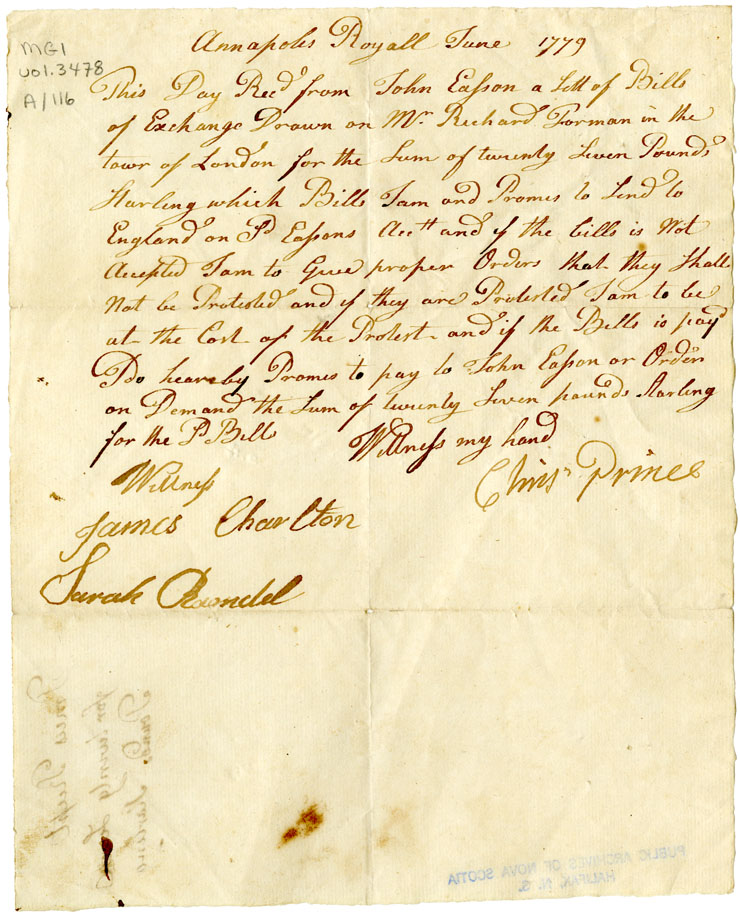 Annapolis Royall June 1779
MG1
vol. 3478
A/116
This Day Recd from John Easson a Sett of Bills
of Exchange Drawn on Mr Richard Forman in the
towr of London for the Sum of twenty Seven Pounds
Starling which Bills I am and Promes to Send to
England on Sd Eassons Acctt and if the bills is Not
Accepted I am to Give proper Orders that they Shall
Not be Protested and if they are Protested I am to be
at the Cost of the Protest and if the Bills is payd
I Do hearby Promes to pay to John Easson or Order
on Demand the Sum of twenty Seven pounds Starling
for the Sd Bills Wittness my hand
Wittness
Chrisr Prince
James Charlton
Sarah Rundel
PUBLIC ARCHIVES OF NOVA SCOTIA
HALIFAX, N. S.